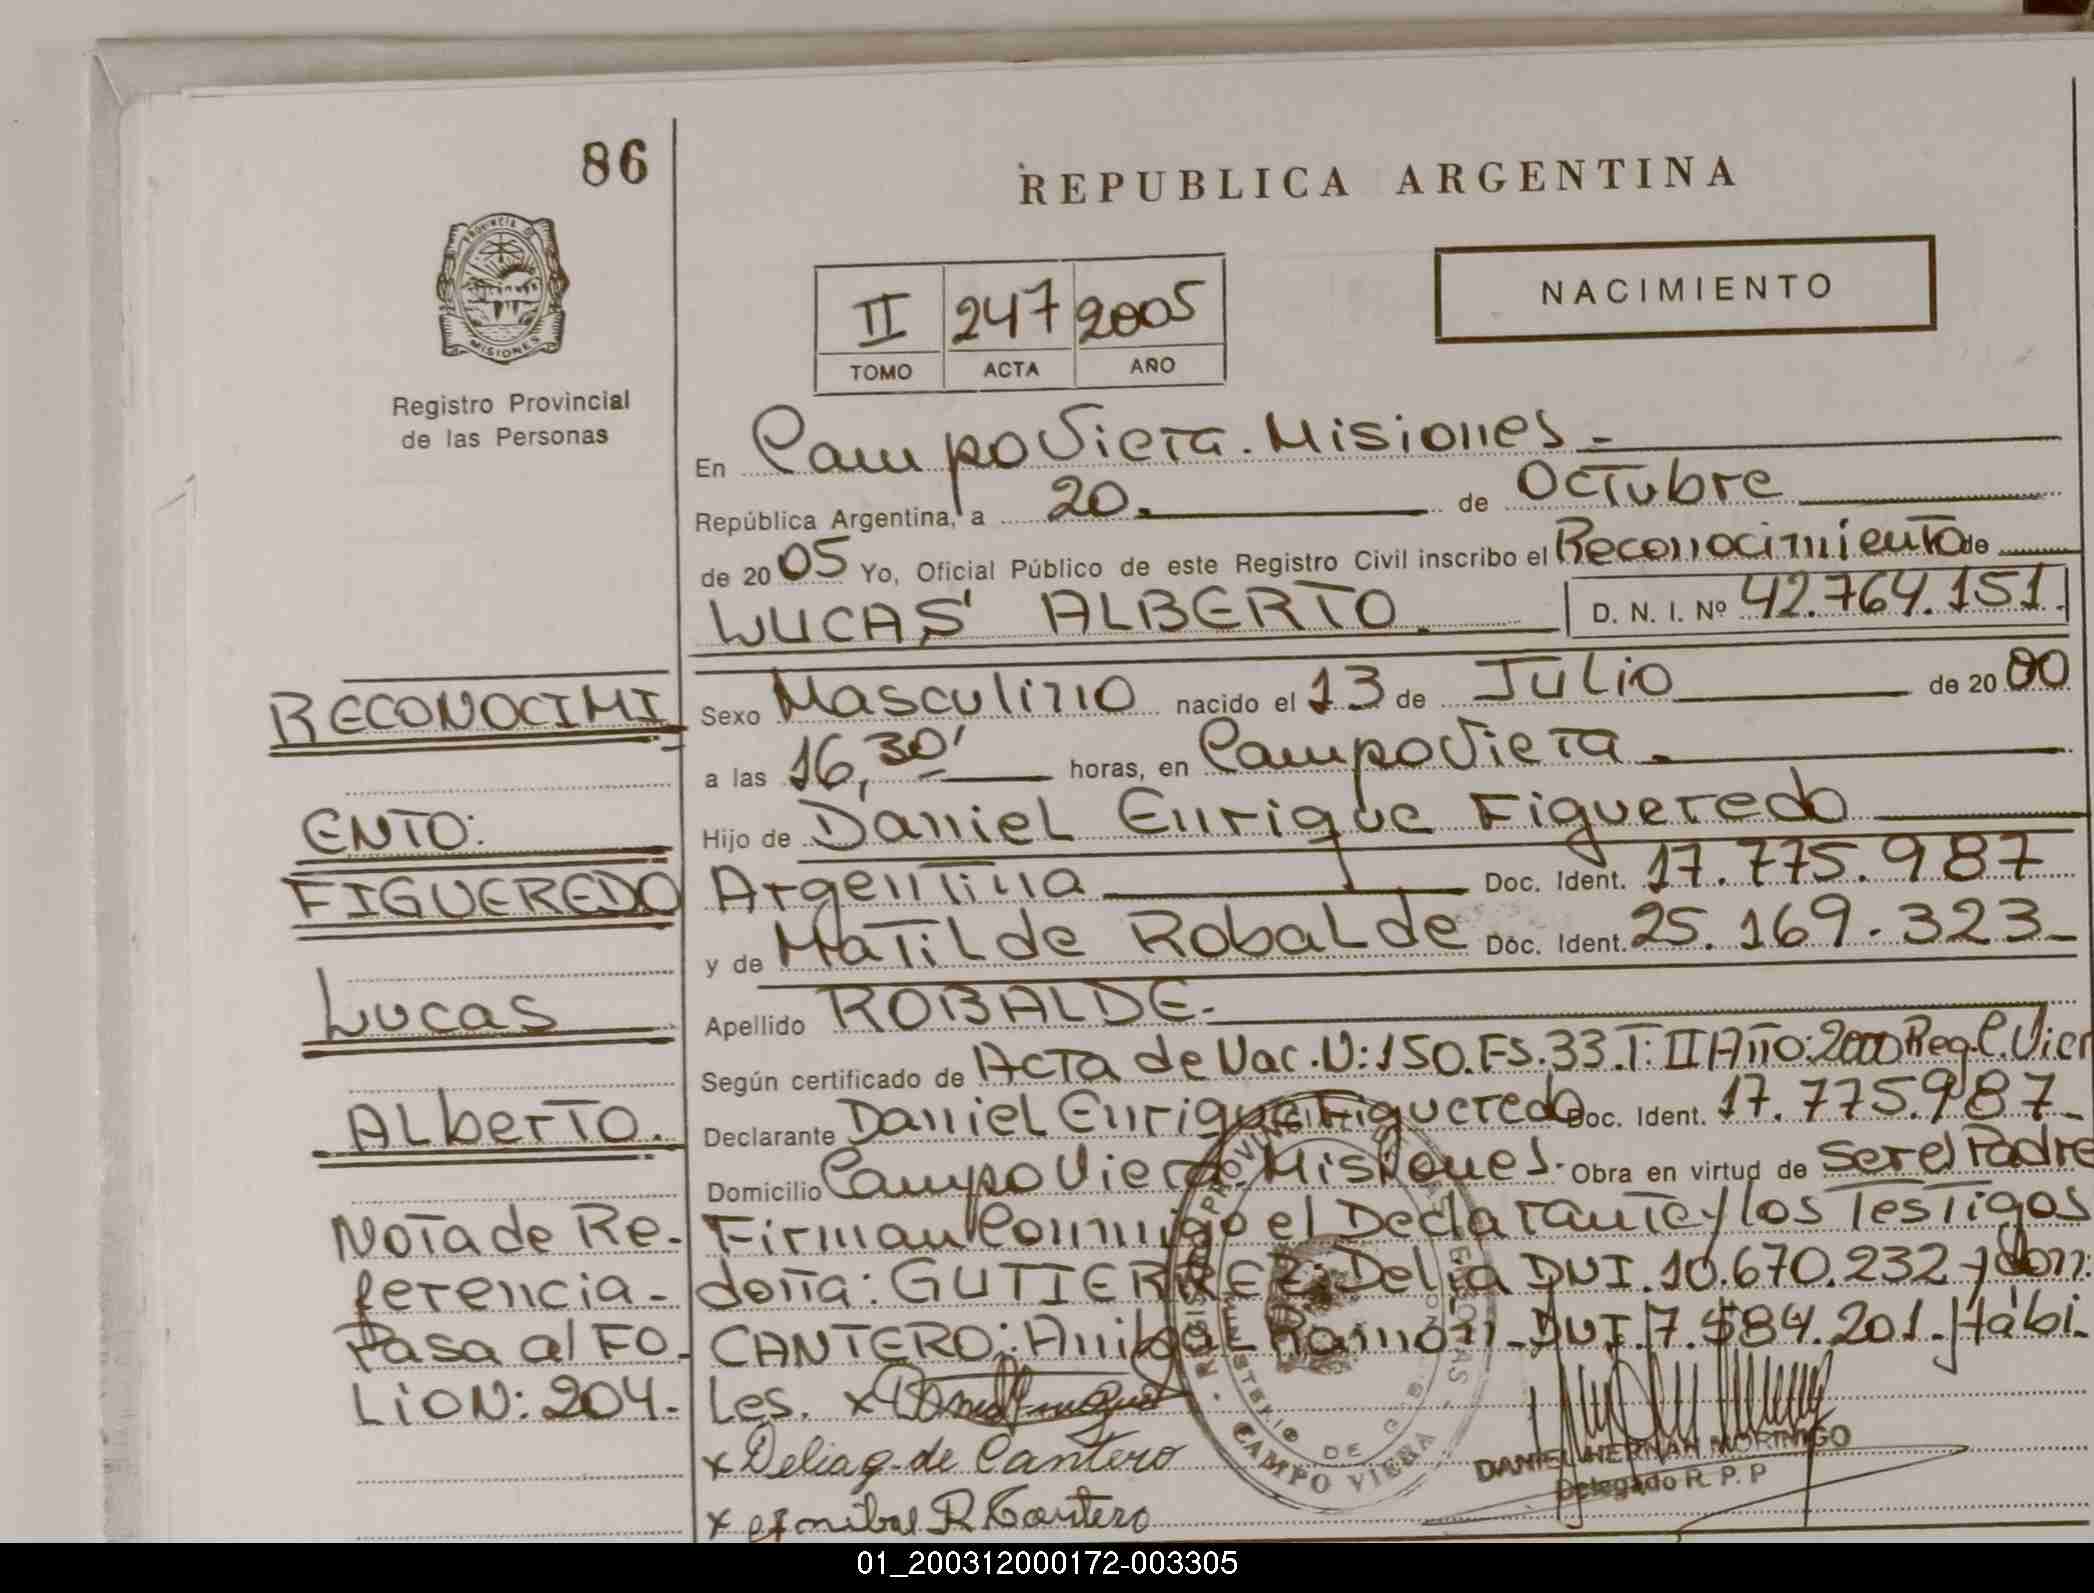 86
REPUBLICA ARGENTINA
PROVINCIA DE
MISIONES
Registro Provincial
de las Personas
II 247 2005
TOMO ACTA AÑO
NACIMIENTO
En Campo Viera. Misiones.-
República Argentina, a 20. de Octubre
de 20 05 Yo, Oficial Público de este Registro Civil inscribo el Reconocimiento de
LUCAS ALBERTO. D. N. I. Nº 42.764.151.
RECONOCIMI
Sexo Masculino nacido el 13 de Julio de 20 00
a las 16,30' horas, en Campo Viera.
ENTO:
Hijo de Daniel Enrique Figueredo
FIGUEREDO
Argentina Doc. Ident. 17.775.987
y de Matilde Robalde Doc. Ident. 25.169.323-
Lucas
Apellido ROBALDE.-
Según certificado de Acta de Nac. N:150.Fs.33.T:II Año:2000 Reg.C.Vier
Alberto.
Declarante Daniel Enrique Figueredo Doc. Ident. 17.775.987-
Domicilio Campo Viera. Misiones. Obra en virtud de Ser el Padre
Nota de Re- Firman Conmigo el Declarante y los Testigos
ferencia- doña: GUTIERREZ: Delia DNI. 10.670.232 y don:
Pasa al FO- CANTERO: Anibal Ramon- DNI 7.584.201. Hábi-
LioN: 204. Les. x
x Delia g. de Cantero
x Anibal R Cantero
CAMPO VIERA
DANIEL HERNAN MORINIGO
Delegado R. P. P
01_200312000172-003305